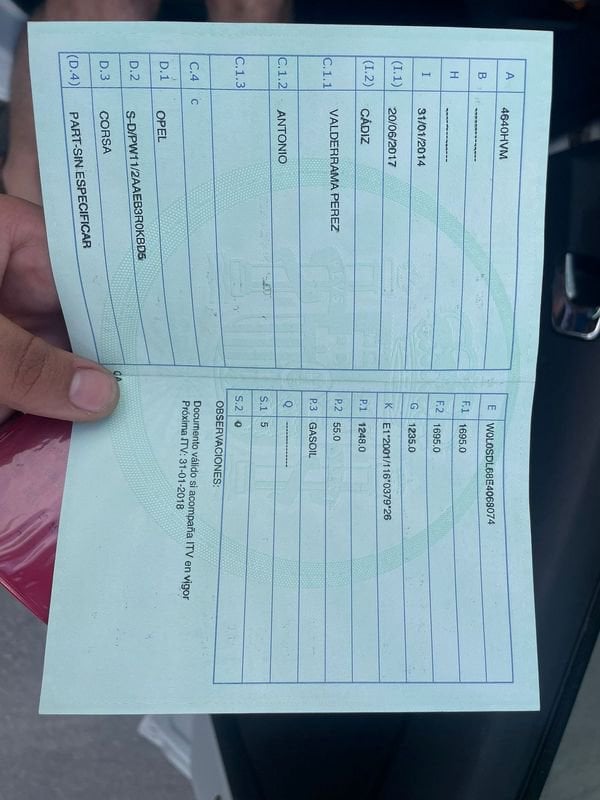 A 4640HVM
B -------------
H -------------
I 31/01/2014
(I.1) 20/06/2017
(I.2) CÁDIZ
C.1.1 VALDERRAMA PEREZ
C.1.2 ANTONIO
C.1.3
C.4 C
D.1 OPEL
D.2 S-D/PW11/2AAEB3R0KBD5
D.3 CORSA
(D.4) PART-SIN ESPECIFICAR
CA
E W0L0SDL68E4068074
F.1 1695.0
F.2 1695.0
G 1235.0
K E1*2001/116*0379*26
P.1 1248.0
P.2 55.0
P.3 GASOIL
Q -------------
S.1 5
S.2 0
OBSERVACIONES:
Documento válido si acompaña ITV en vigor
Próxima ITV: 31-01-2018